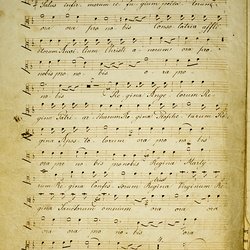 Salus infir morum re fu gium pecca torum
ora ora pro no bis Conso latrix afflic
torum Auxi lium Christi a norum ora pro
nobis pro no bis ora pro
no bis Re gina Ange lorum Re
gina Patri ar charum Re gina Prophe tarum Re
gina Apos to lorum ora pro no bis
ora pro no bis no bis Regina Marty
rum Re gina Confes sorum Regina Virginum Re
gina Sanctorum omnium ora ora
ora pro no bis ora pro no bis